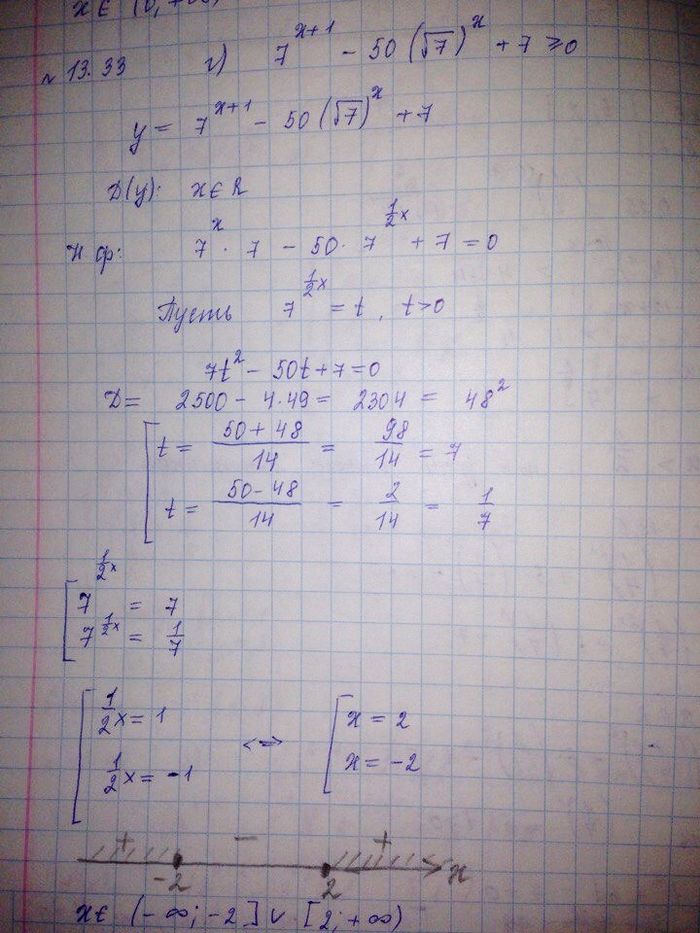 x ∈ (0, +∞)
№ 13.33 г) 7^(x+1) − 50(√7)^x + 7 ≥ 0
y = 7^(x+1) − 50(√7)^x + 7
D(y): x ∈ R
Н ф: 7^x · 7 − 50 · 7^(1/2 x) + 7 = 0
Пусть 7^(1/2 x) = t, t > 0
7t² − 50t + 7 = 0
D = 2500 − 4·49 = 2304 = 48²
[ t = (50 + 48)/14 = 98/14 = 7
t = (50 − 48)/14 = 2/14 = 1/7
[ 7^(1/2 x) = 7
7^(1/2 x) = 1/7
[ 1/2 x = 1 <=> [ x = 2
1/2 x = −1 x = −2
+ − +
−2 2 x
x ∈ (−∞; −2] ∪ [2; +∞)